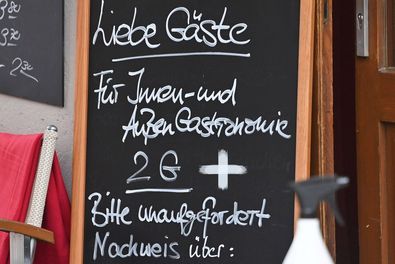 Liebe Gäste
Für Innen- und
Außen Gastronomie
2 G +
Bitte unaufgefordert
Nachweis über: